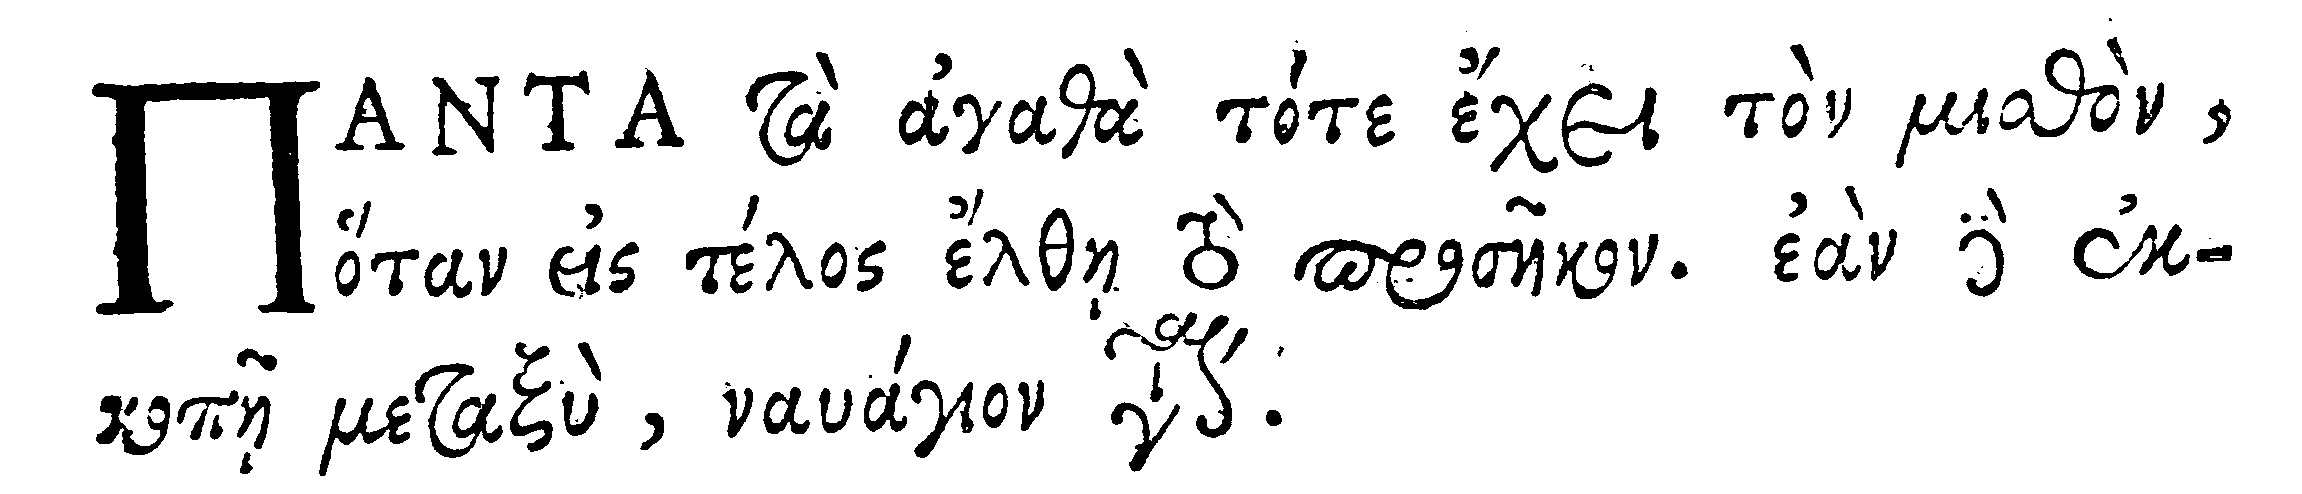 ΠΑΝΤΑ τὰ ἀγαθὰ τότε ἔχει τὸν μισθὸν,
ὅταν εἰς τέλος ἔλθῃ τὸ προσῆκον. ἐὰν δὲ ἐκ-
κοπῇ μεταξὺ, ναυάγιον γίνεται.